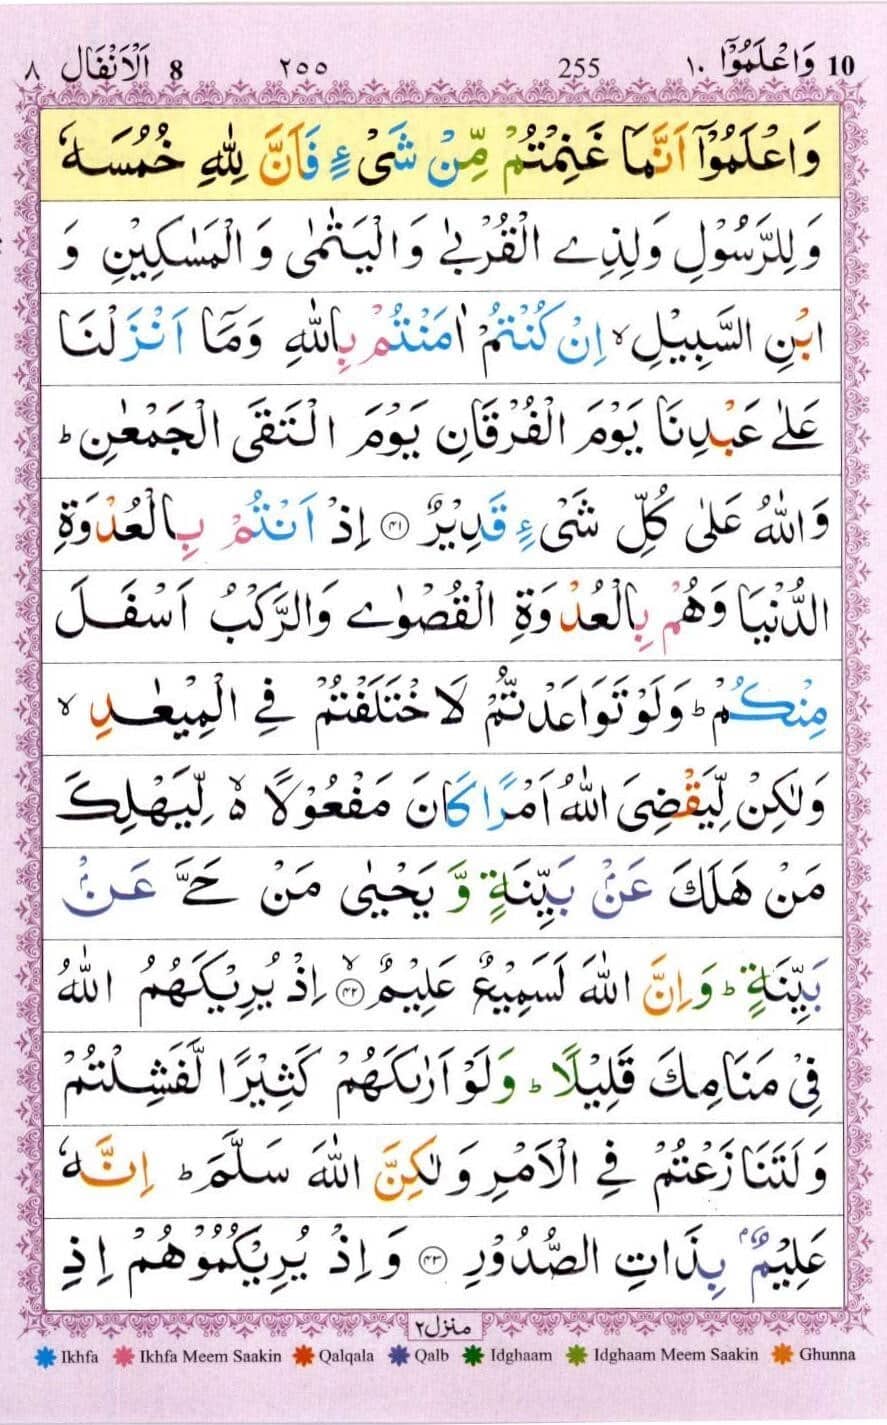 10 وَاعْلَمُوْٓا ١٠ 255 ٢٥٥ 8 اَلْاَنْفَال ٨
وَاعْلَمُوْٓا اَنَّمَا غَنِمْتُمْ مِّنْ شَیْءٍ فَاَنَّ لِلّٰهِ خُمُسَهٗ
وَلِلرَّسُوْلِ وَلِذِی الْقُرْبٰی وَالْیَتٰمٰی وَالْمَسٰكِیْنِ وَ
ابْنِ السَّبِیْلِ ۙ اِنْ كُنْتُمْ اٰمَنْتُمْ بِاللّٰهِ وَمَاۤ اَنْزَلْنَا
عَلٰی عَبْدِنَا یَوْمَ الْفُرْقَانِ یَوْمَ الْتَقَی الْجَمْعٰنِ ؕ
وَاللّٰهُ عَلٰی كُلِّ شَیْءٍ قَدِیْرٌ ﴿۴۱﴾ اِذْ اَنْتُمْ بِالْعُدْوَةِ
الدُّنْیَا وَهُمْ بِالْعُدْوَةِ الْقُصْوٰی وَالرَّكْبُ اَسْفَلَ
مِنْكُمْ ؕ وَلَوْ تَوَاعَدْتُّمْ لَاخْتَلَفْتُمْ فِی الْمِیْعٰدِ ۙ
وَلٰكِنْ لِّیَقْضِیَ اللّٰهُ اَمْرًا كَانَ مَفْعُوْلًا ۙ۬ لِّیَهْلِكَ
مَنْ هَلَكَ عَنْۢ بَیِّنَةٍ وَّ یَحْیٰی مَنْ حَیَّ عَنْۢ
بَیِّنَةٍ ؕ وَاِنَّ اللّٰهَ لَسَمِیْعٌ عَلِیْمٌ ﴿ۙ۴۲﴾ اِذْ یُرِیْكَهُمُ اللّٰهُ
فِیْ مَنَامِكَ قَلِیْلًا ؕ وَلَوْ اَرٰىكَهُمْ كَثِیْرًا لَّفَشِلْتُمْ
وَلَتَنَازَعْتُمْ فِی الْاَمْرِ وَلٰكِنَّ اللّٰهَ سَلَّمَ ؕ اِنَّهٗ
عَلِیْمٌۢ بِذَاتِ الصُّدُوْرِ ﴿۴۳﴾ وَاِذْ یُرِیْكُمُوْهُمْ اِذِ
منزل ٢
Ikhfa Ikhfa Meem Saakin Qalqala Qalb Idghaam Idghaam Meem Saakin Ghunna